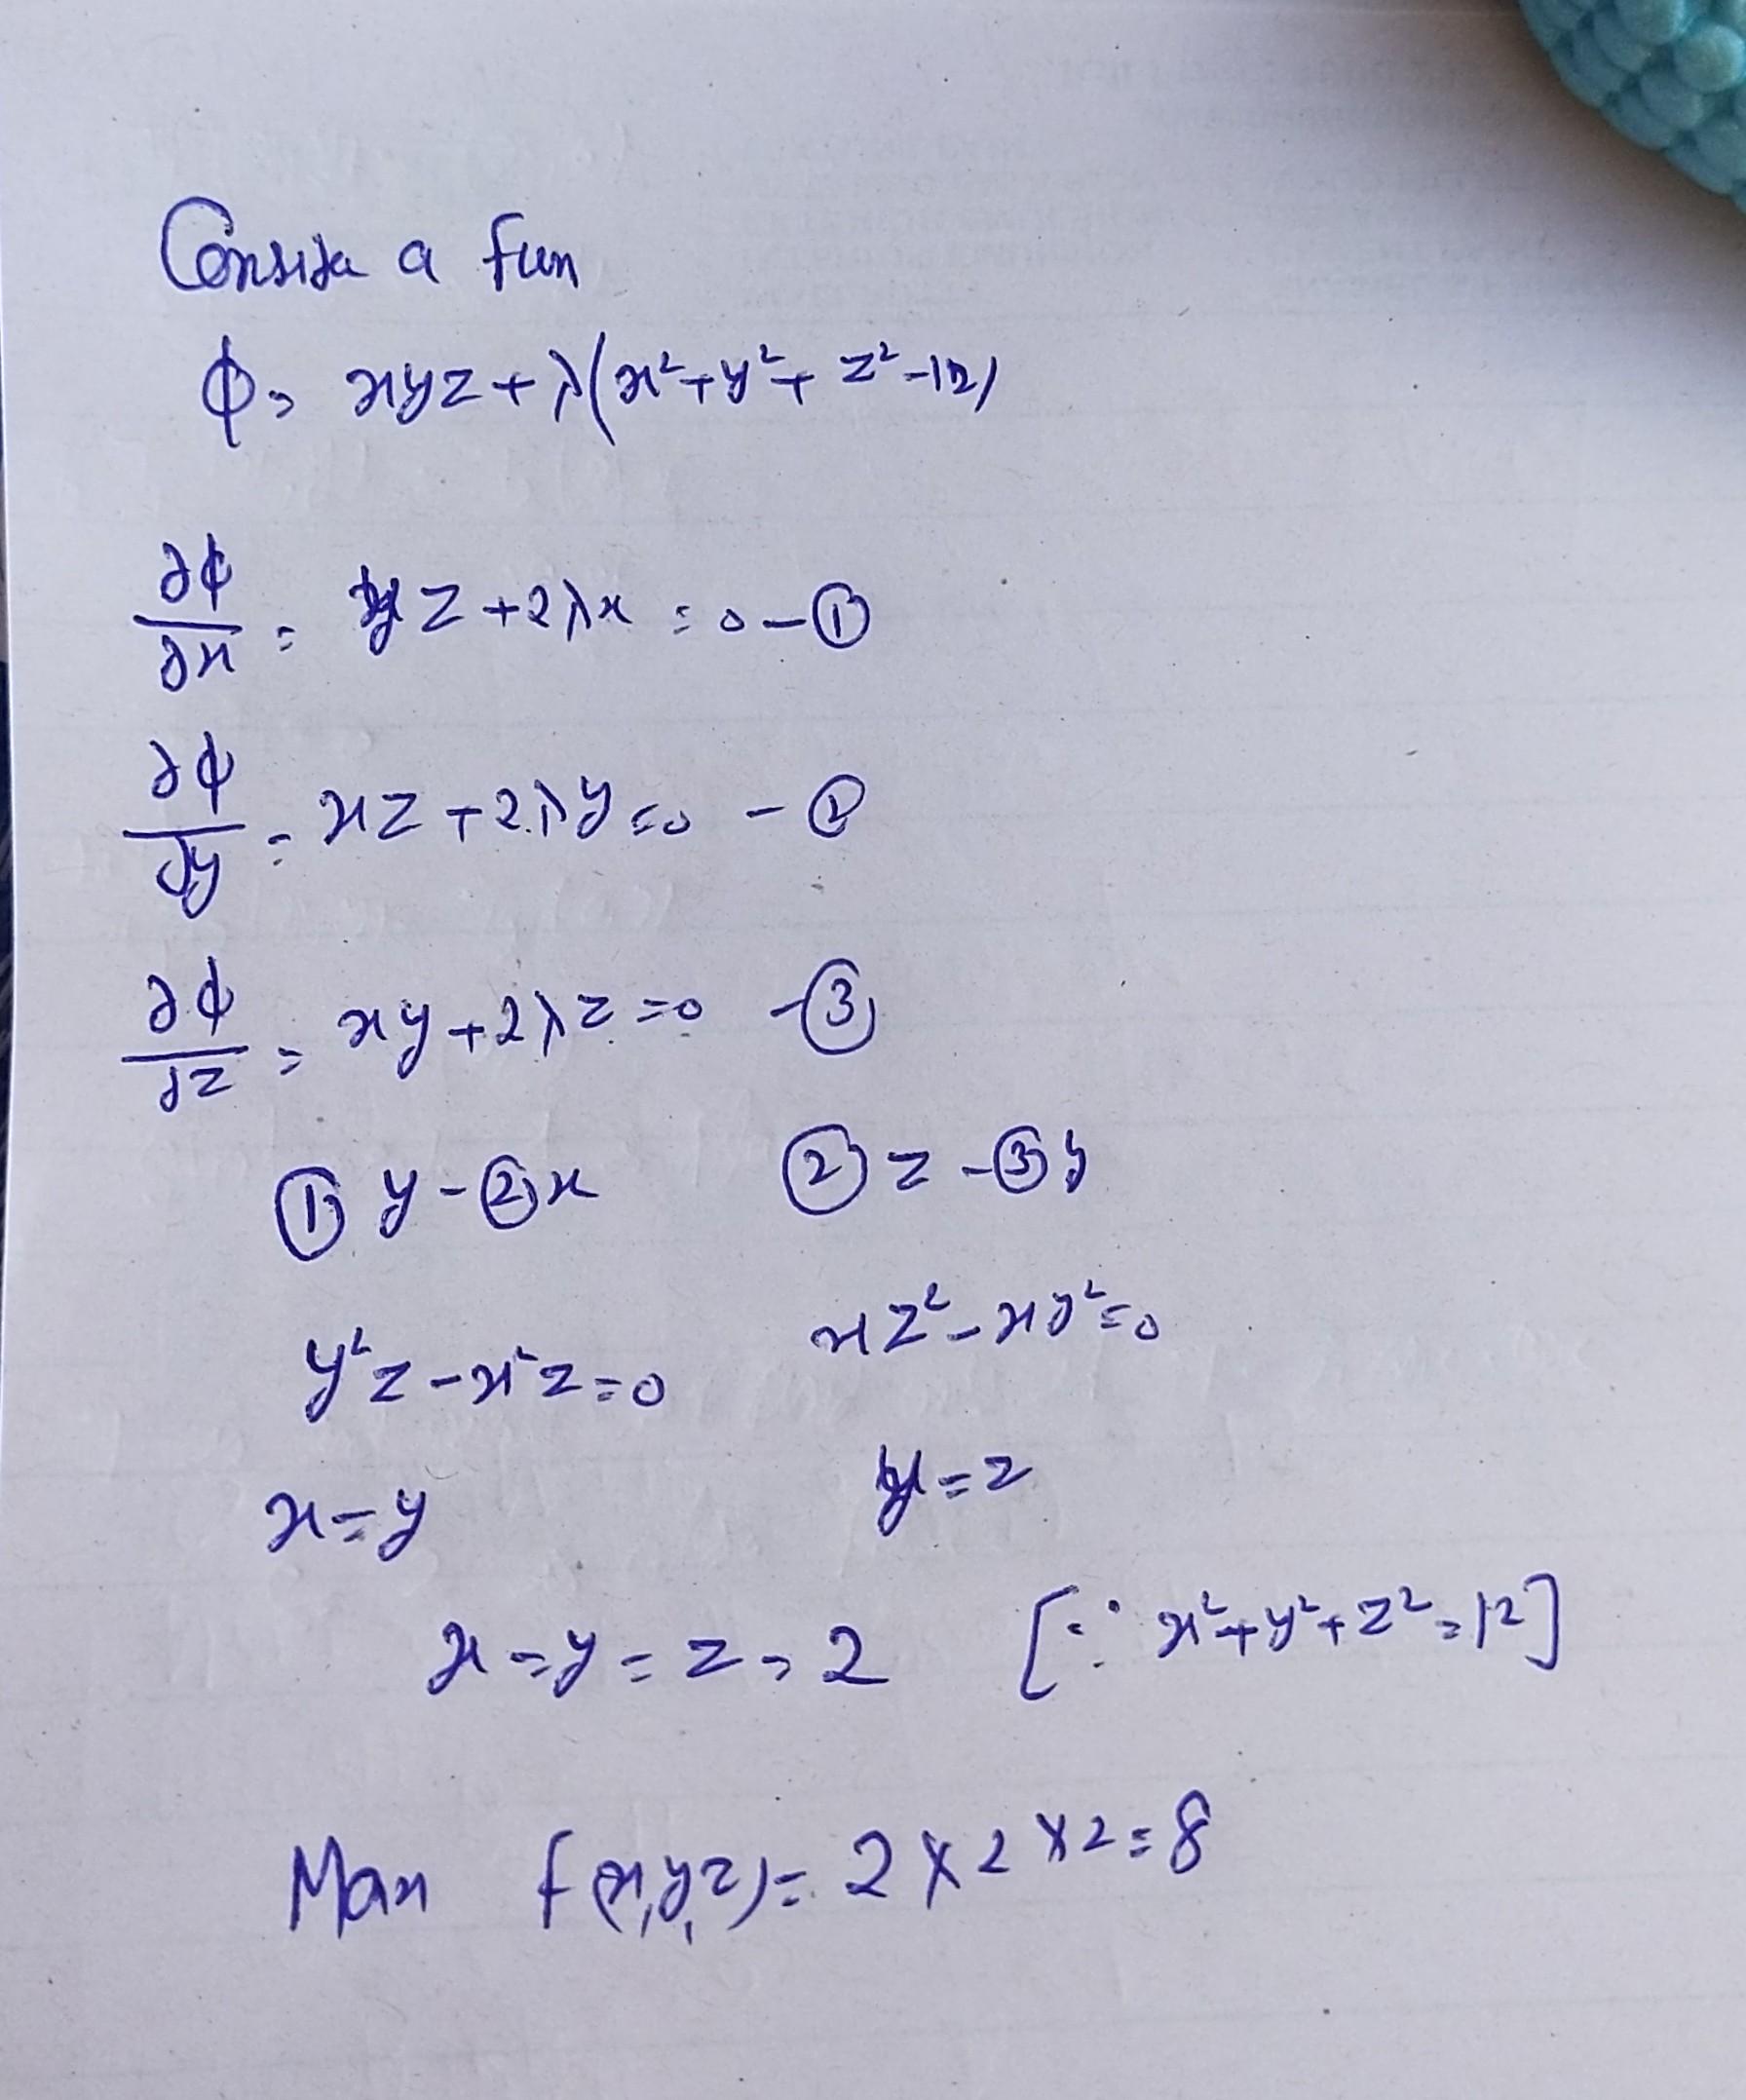 Consider a fun
ϕ = xyz + λ(x² + y² + z² - 12)
∂ϕ/∂x = yz + 2λx = 0 - ①
∂ϕ/∂y = xz + 2λy = 0 - ②
∂ϕ/∂z = xy + 2λz = 0 - ③
① y - ② x ② z - ③ y
y²z - x²z = 0 xz² - xy² = 0
x = y y = z
x = y = z = 2 [∵ x² + y² + z² = 12]
Max f(x,y,z) = 2 × 2 × 2 = 8